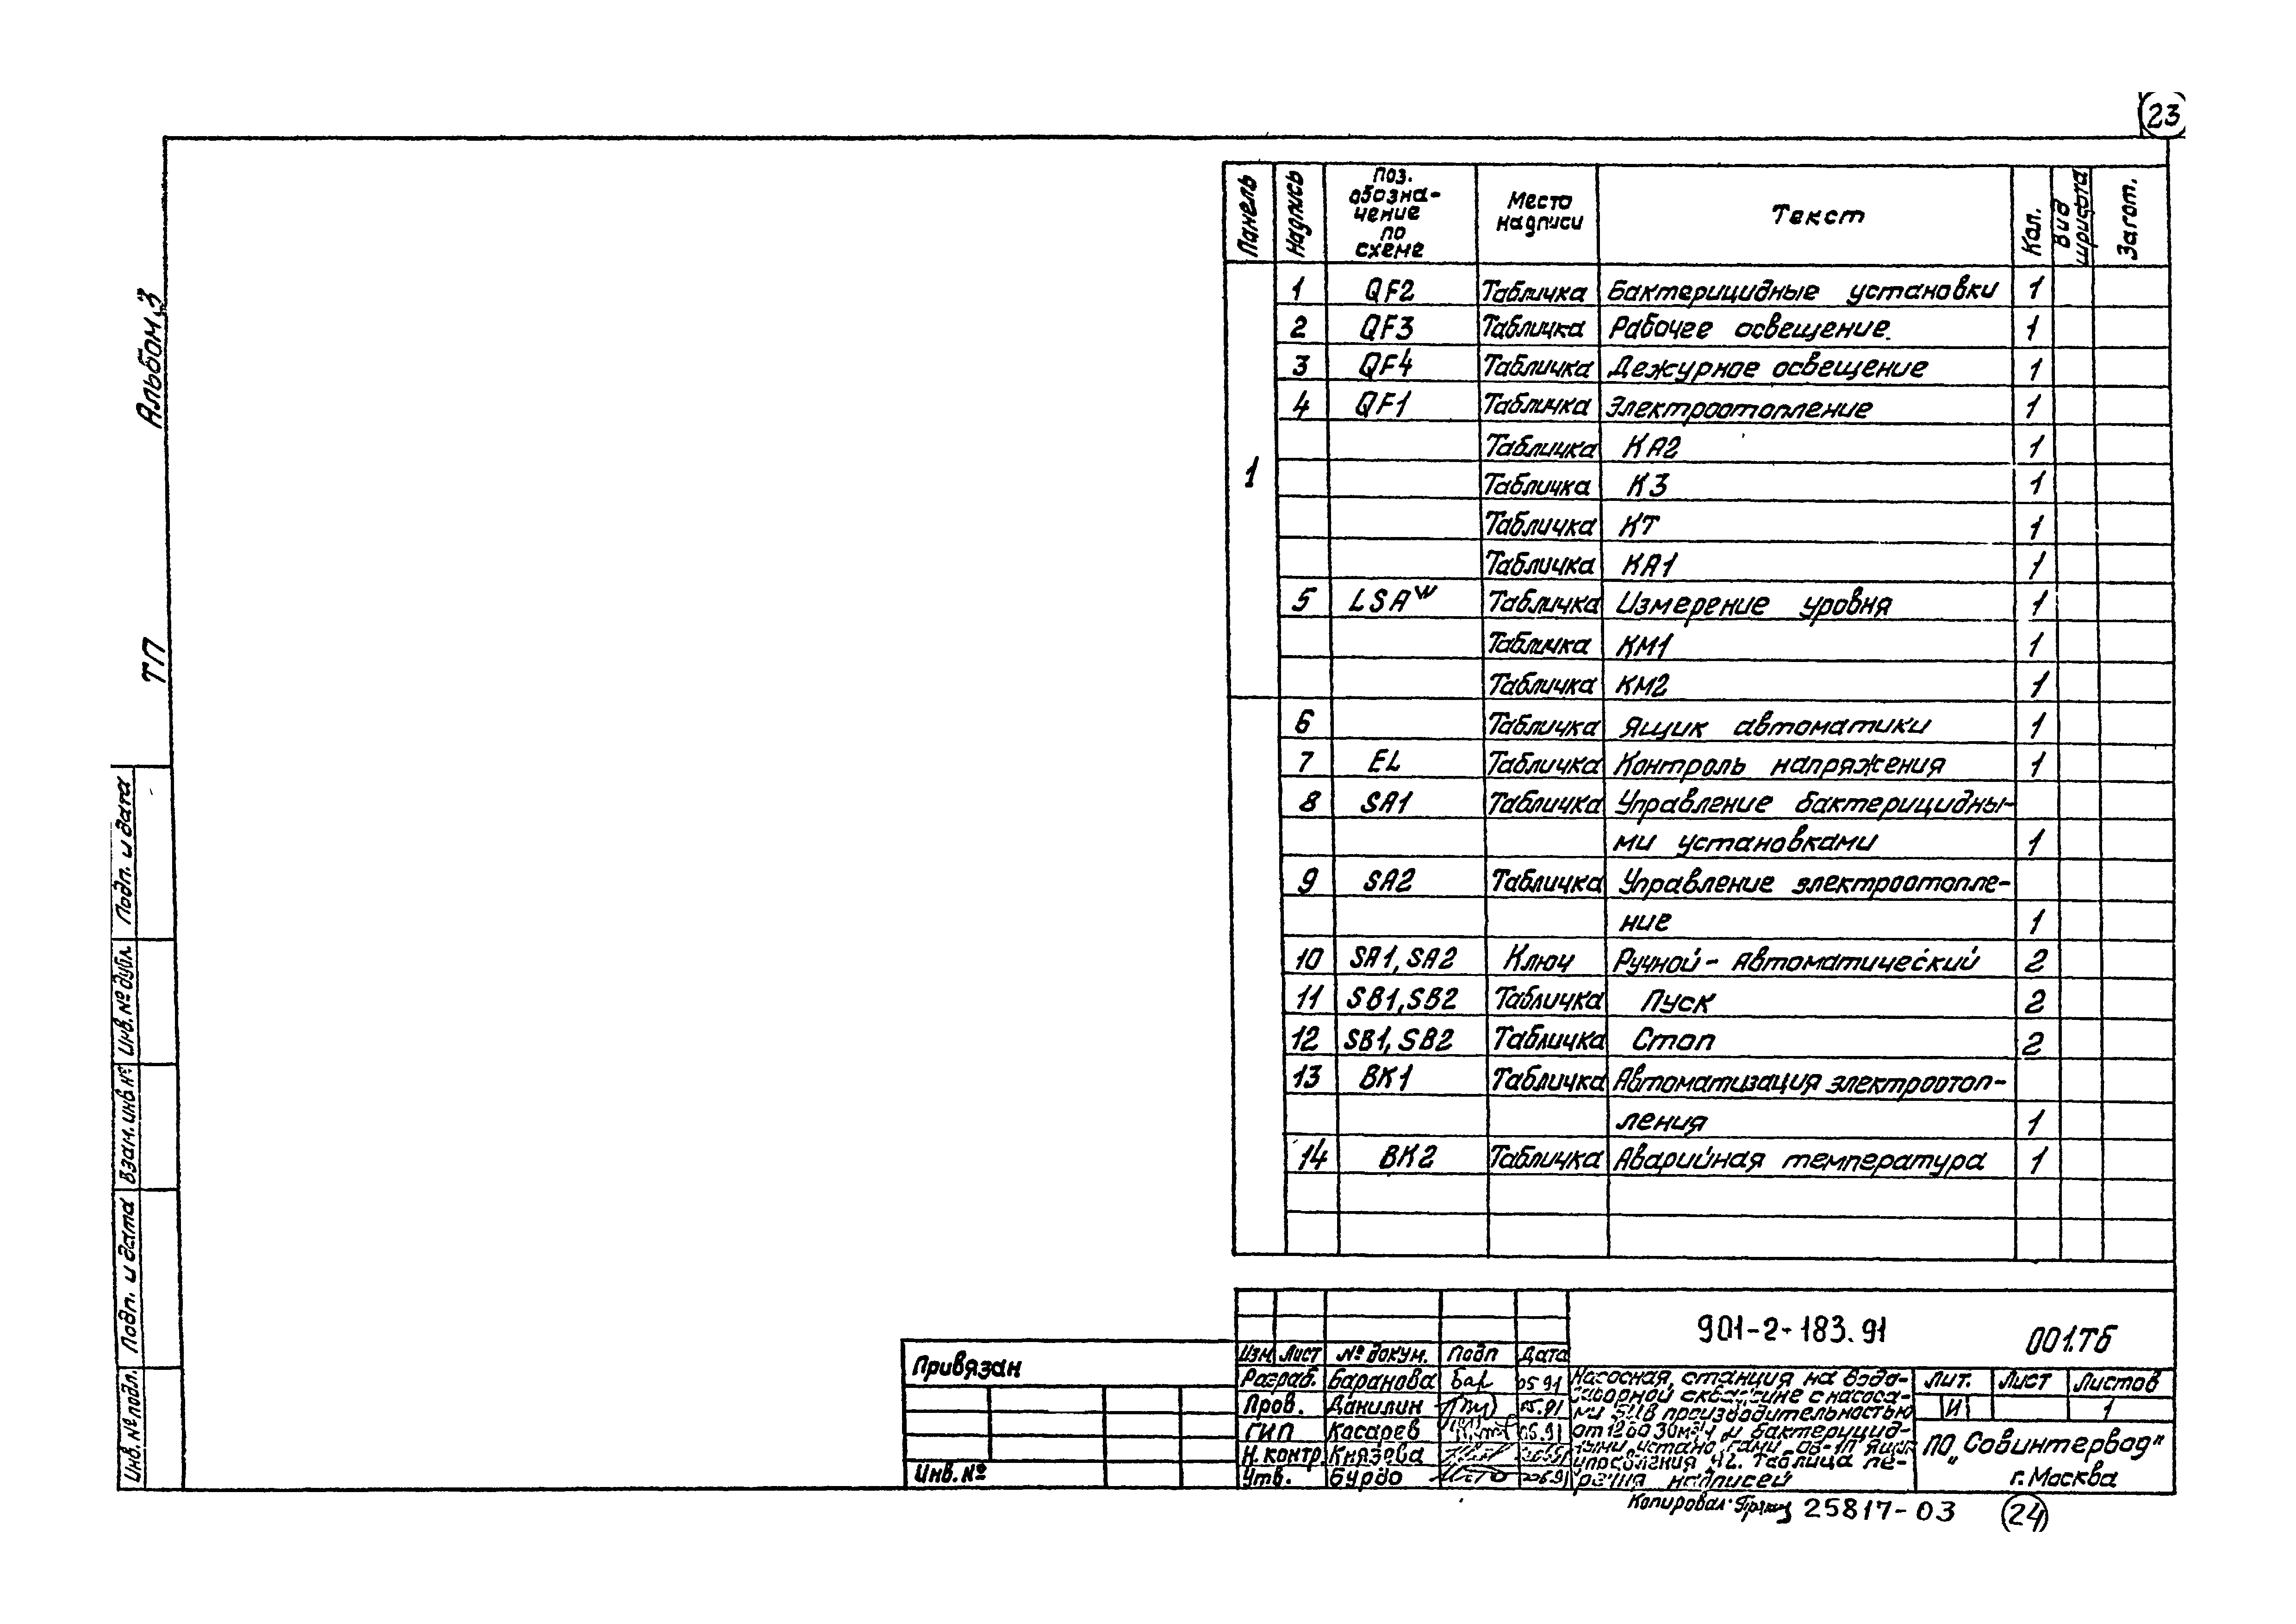 23
Альбом 3
ТП
Панель | Надпись | Поз. обозна- чение по схеме | Место надписи | Текст | Кол. | Вид шрифта | Загот.
1
1 QF2 Табличка Бактерицидные установки 1
2 QF3 Табличка Рабочее освещение. 1
3 QF4 Табличка Дежурное освещение 1
4 QF1 Табличка Электроотопление 1
Табличка КА2 1
Табличка К3 1
Табличка КТ 1
Табличка КА1 1
5 LSA Табличка Измерение уровня 1
Табличка КМ1 1
Табличка КМ2 1
6 Табличка Ящик автоматики 1
7 EL Табличка Контроль напряжения 1
8 SA1 Табличка Управление бактерицидны-
ми установками 1
9 SA2 Табличка Управление электроотопле-
ние 1
10 SA1, SA2 Ключ Ручной - Автоматический 2
11 SB1, SB2 Табличка Пуск 2
12 SB1, SB2 Табличка Стоп 2
13 BK1 Табличка Автоматизация электроотоп-
ления 1
14 BK2 Табличка Аварийная температура 1
Подп. и дата
Инв. № дубл.
Взам. инв. №
Подп. и дата
Инв. № подл.
Привязан
Инв. №
901-2-183.91 001.ТБ
Изм Лист № докум. Подп Дата
Разраб. Баранова Бар 05.91
Пров. Данилин 05.91
ГИП Косарев 05.91
Н. контр. Князева
Утв. Бурдо
Насосная станция на водо-
заборной скважине с насоса-
ми производительностью
и бактерицид-
ными ящик
управления Таблица пе-
речня надписей
Лит. Лист Листов
И 1
ПО „Совинтервод"
г. Москва
Копировал: 25817-03 24